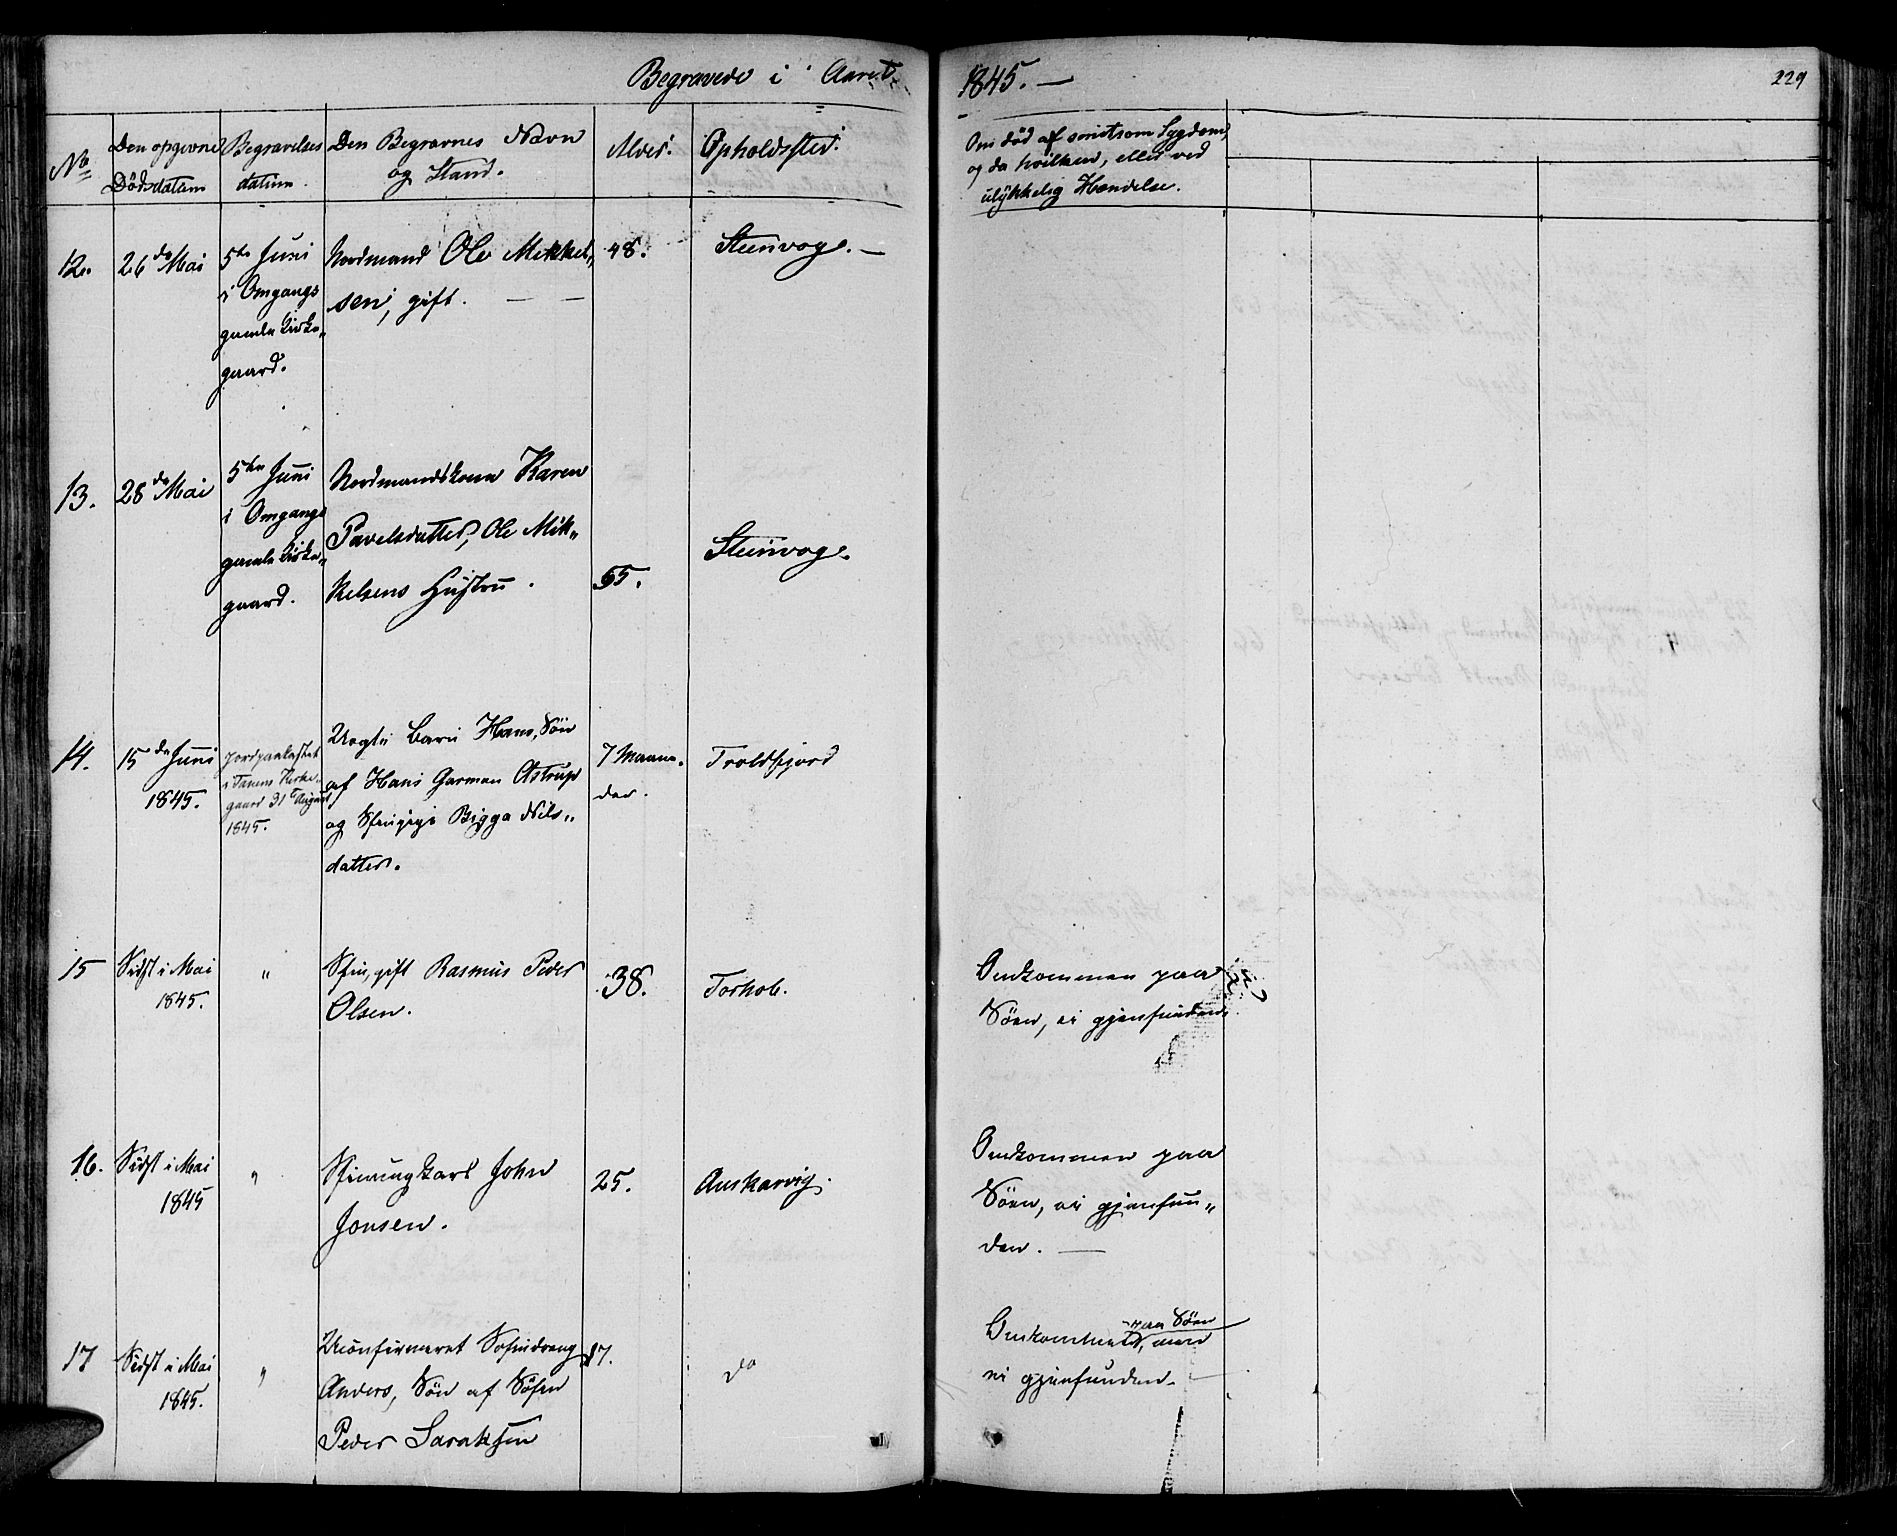 Begravede i Aaret 1845. —
229
No
Den opgivne
Dödsdatum
Begravelses
datum.
Den Begravnes Navn
og Stand.
Alder.
Opholdssted.
Om död af smitsom Sygdom,
og da hvilken, eller ved
ulykkelig Hændelse.
12.
26de Mai
5te Juni
i Omgangs
gamle Kirke„
gaard.
Nordmand Ole Mikkel„
sen, gift. — —
48.
Steinvog. —
13.
28de Mai
5te Juni
i Omgangs
gamle Kirke„
gaard.
Nordmandskone Karen
Pavelsdatter, Ole Mik„
kelsens Hustru.
55.
Steinvog.
14.
15de Juni
1845.
Jordpaakastet
i Tanens Kirke„
gaard 31te August
1845.
Uægte Barn Hans, Sön
af Hans Garman Astrup
og Pige Bigga Nils„
datter.
7 Maane„
der.
Troldfjord
15
Sidst i Mai
1845.
"
gift Rasmus Peder
Olsen.
38.
Torhob.
Omkommen paa
Söen, ei gjenfunden.
16.
Sidst i Mai
1845
"
John
Jonsen.
25.
Auskarvig.
Omkommen paa
Söen, ei gjenfun„
den. —
17
Sidst i Mai
1845.
"
Uconfirmeret
Anders, Sön af
Peder
17.
do
Omkommen paa Söen, men
ei gjenfunden. —